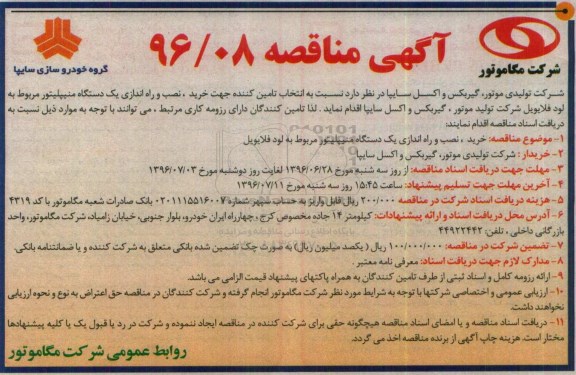 آگهی مناقصه ۹۶/۰۸
شرکت مگاموتور
گروه خودروسازی سایپا
شرکت تولیدی موتور، گیربکس و اکسل سایپا در نظر دارد نسبت به انتخاب تامین کننده جهت خرید ، نصب و راه اندازی یک دستگاه منیپلیتور مربوط به
لود فلایویل شرکت تولید موتور ، گیربکس و اکسل سایپا اقدام نماید . لذا تامین کنندگان دارای رزومه کاری مرتبط ، می توانند با توجه به موارد ذیل نسبت به
دریافت اسناد مناقصه اقدام نمایند:
۱- موضوع مناقصه: خرید ، نصب و راه اندازی یک دستگاه منیپلیتور مربوط به لود فلایویل
۲- خریدار : شرکت تولیدی موتور، گیربکس و اکسل سایپا
۳- مهلت جهت دریافت اسناد مناقصه: از روز سه شنبه مورخ ۱۳۹۶/۰۶/۲۸ لغایت روز دوشنبه مورخ ۱۳۹۶/۰۷/۰۳
۴- آخرین مهلت جهت تسلیم پیشنهاد: ساعت ۱۵:۴۵ روز سه شنبه مورخ ۱۳۹۶/۰۷/۱۱
۵- هزینه دریافت اسناد شرکت در مناقصه ۲۰۰/۰۰۰ ریال قابل واریز به حساب سپهر شماره ۰۲۰۱۱۱۵۵۱۶۰۰۷ بانک صادرات شعبه مگاموتور با کد ۴۳۱۹
۶- آدرس محل دریافت اسناد و ارائه پیشنهادات: کیلومتر ۱۴ جاده مخصوص کرج ، چهارراه ایران خودرو، بلوار جنوبی، خیابان زامیاد، شرکت مگاموتور، واحد
بازرگانی داخلی ، تلفن: ۴۴۹۲۲۴۴۲
۷- تضمین شرکت در مناقصه: ۱۰۰/۰۰۰/۰۰۰ ریال ( یکصد میلیون ریال) به صورت چک تضمین شده بانکی متعلق به شرکت کننده و یا ضمانتنامه بانکی.
۸- مدارک لازم جهت دریافت اسناد: معرفی نامه معتبر .
۹- ارائه رزومه کامل و اسناد ثبتی از طرف تامین کنندگان به همراه پاکتهای پیشنهاد قیمت الزامی می باشد.
۱۰- ارزیابی عمومی و اختصاصی شرکتها با توجه به شرایط مورد نظر شرکت مگاموتور انجام گرفته و شرکت کنندگان در مناقصه حق اعتراض به نوع و نحوه ارزیابی
نخواهند داشت.
۱۱- دریافت اسناد مناقصه و یا امضای اسناد مناقصه هیچگونه حقی برای شرکت کننده در مناقصه ایجاد ننموده و شرکت در رد یا قبول یک یا کلیه پیشنهادها
مختار است. هزینه چاپ آگهی از برنده مناقصه اخذ می گردد.
روابط عمومی شرکت مگاموتور